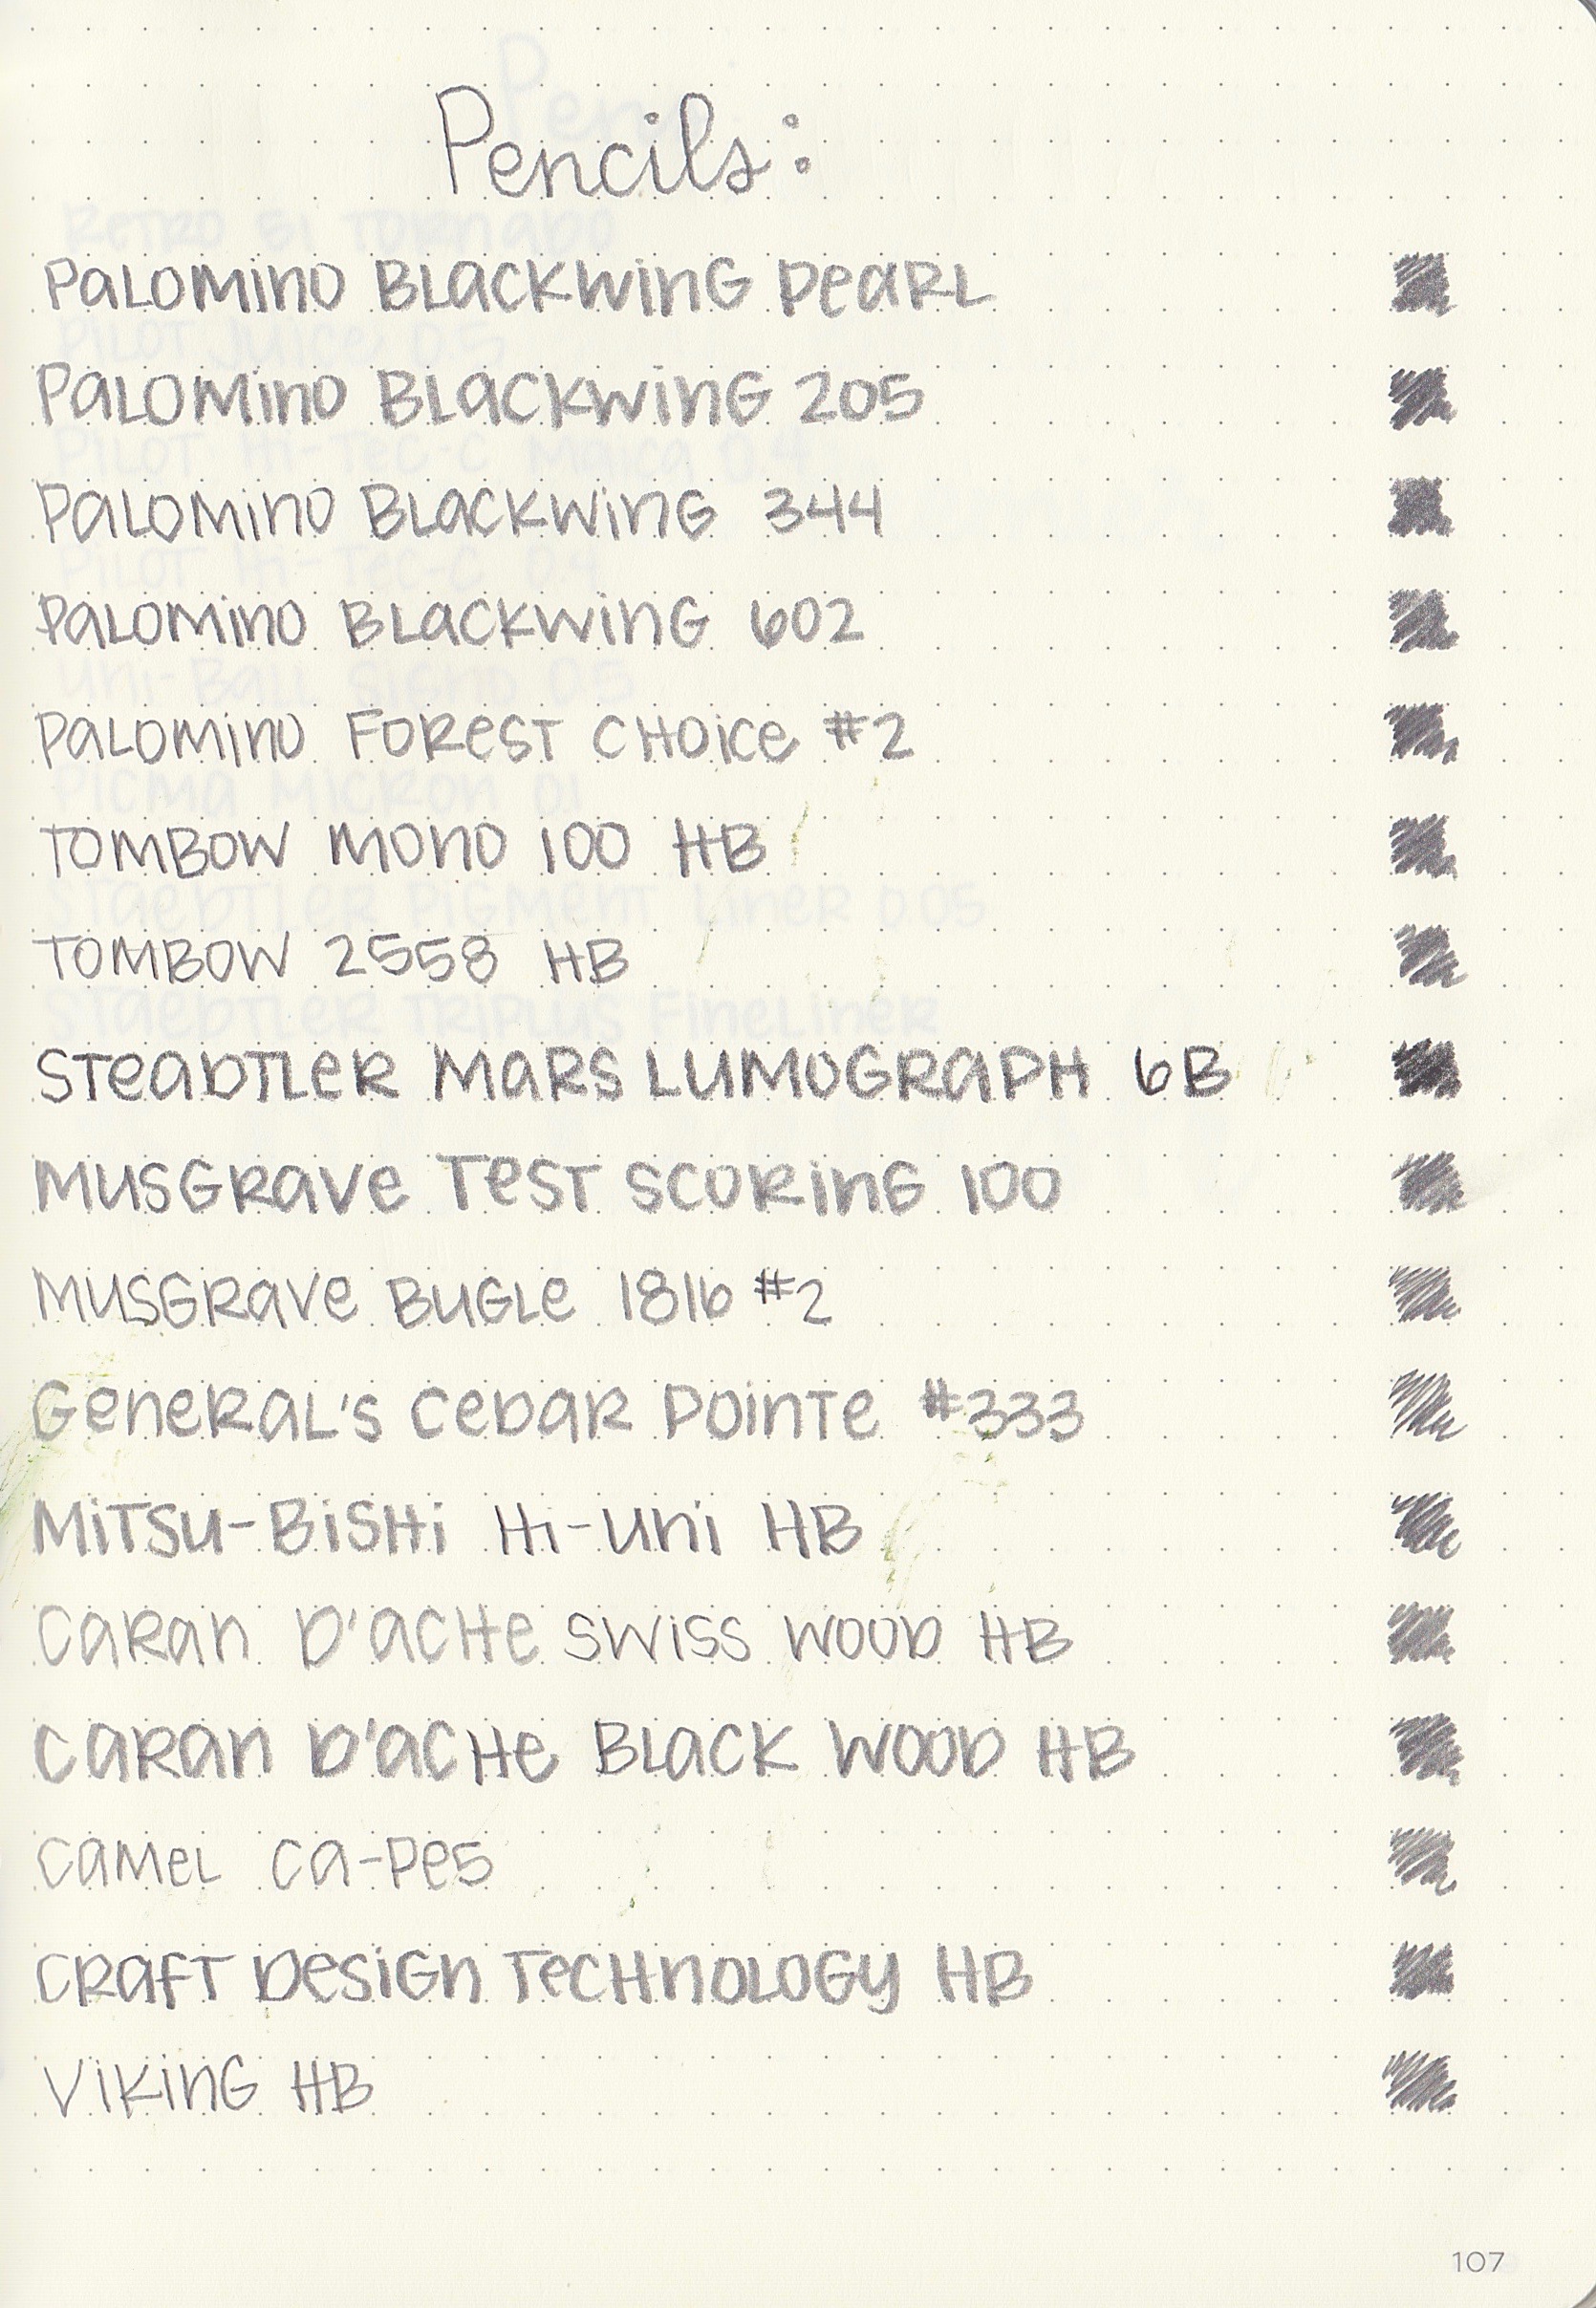 Pencils:
PALOMINO BLACKWING PEARL
PALOMINO BLACKWING 205
PALOMINO BLACKWING 344
PALOMINO BLACKWING 602
PALOMINO FOREST CHOICE #2
TOMBOW MONO 100 HB
TOMBOW 2558 HB
STEADTLER MARS LUMOGRAPH 6B
MUSGRAVE TEST SCORING 100
MUSGRAVE BUGLE 1816 #2
GENERAL'S CEDAR POINTE #333
MITSU-BISHI HI-UNI HB
CARAN D'ACHE SWISS WOOD HB
CARAN D'ACHE BLACK WOOD HB
CAMEL CA-PE5
CRAFT DESIGN TECHNOLOGY HB
VIKING HB
107